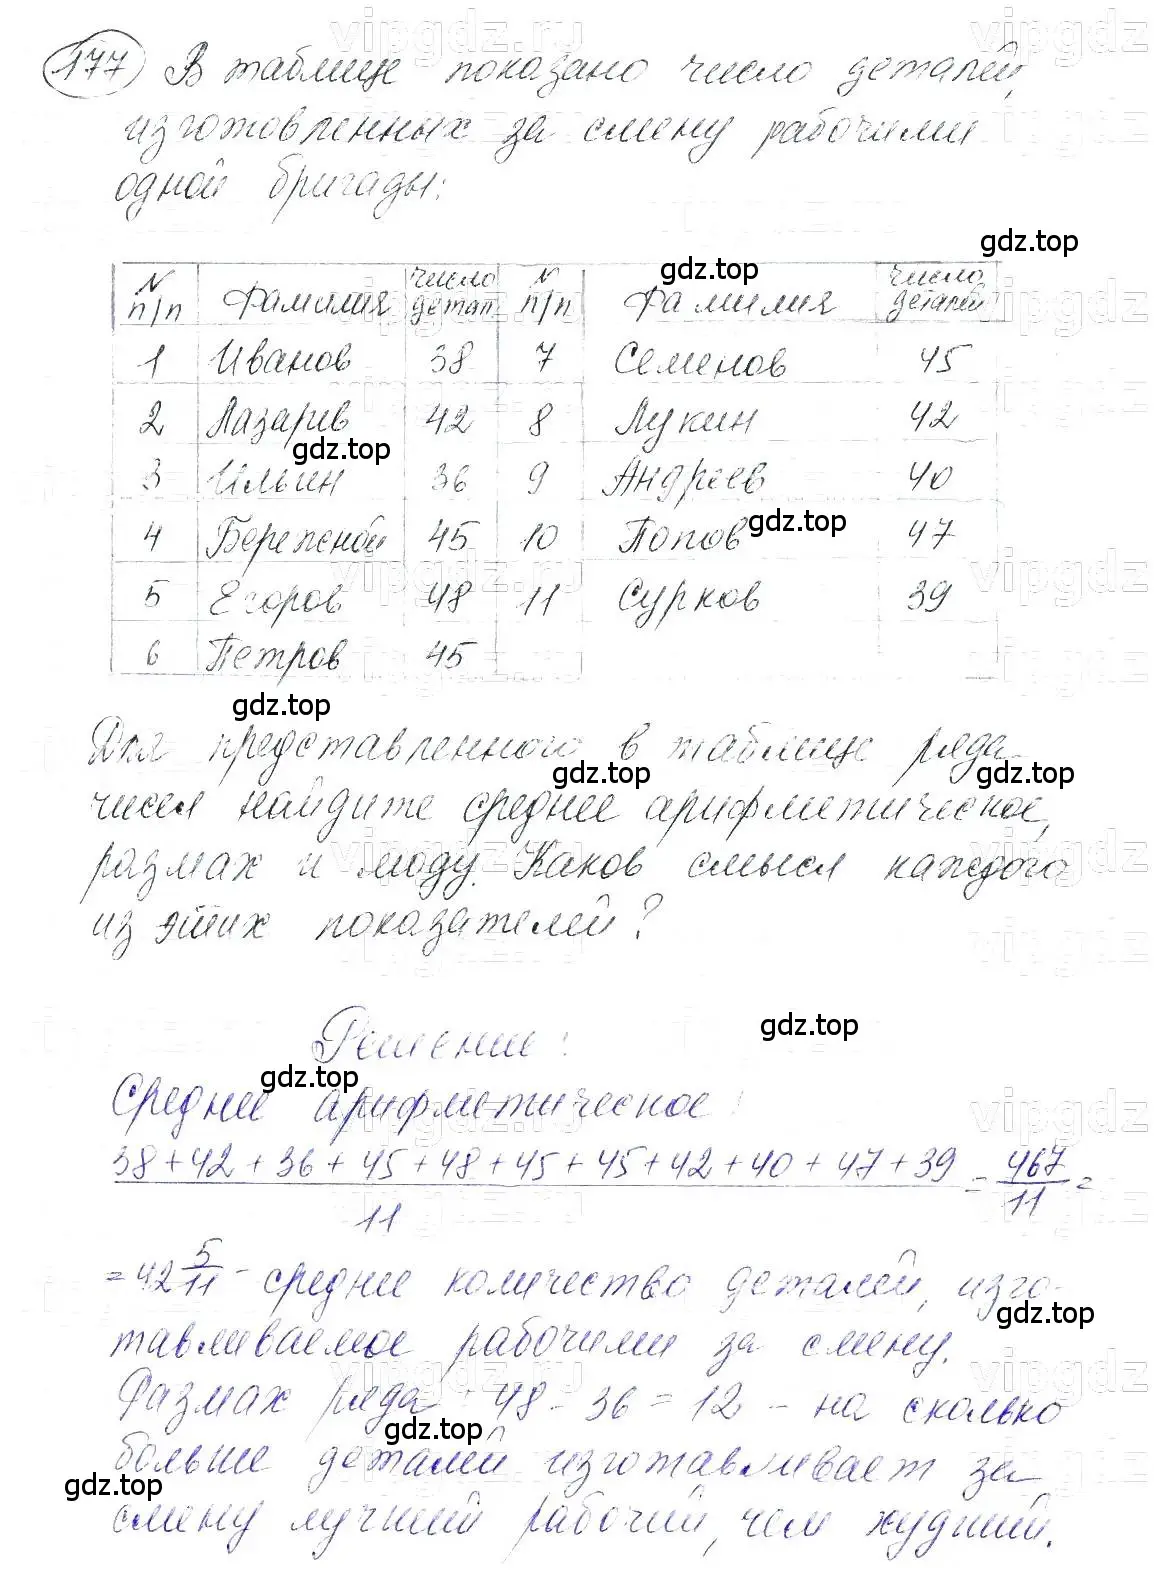 177 В таблице показано число деталей,
изготовленных за смену рабочими
одной бригады:
N п/п Фамилия число детал N п/п Фамилия число деталей
1 Иванов 38 7 Семенов 45
2 Лазарев 42 8 Лукин 42
3 Ильин 36 9 Андреев 40
4 Бережной 45 10 Попов 47
5 Егоров 48 11 Сурков 39
6 Петров 45
Для представленного в таблице ряда
чисел найдите среднее арифметическое,
размах и моду. Каков смысл каждого
из этих показателей?
Решение:
Среднее арифметическое:
38+42+36+45+48+45+45+42+40+47+39/11 = 467/11 =
= 42 5/11 - среднее количество деталей, изго-
тавливаемое рабочими за смену.
Размах ряда: 48 - 36 = 12 - на сколько
больше деталей изготавливает за
смену лучший рабочий, чем худший.
vipgdz.ru
gdz.top